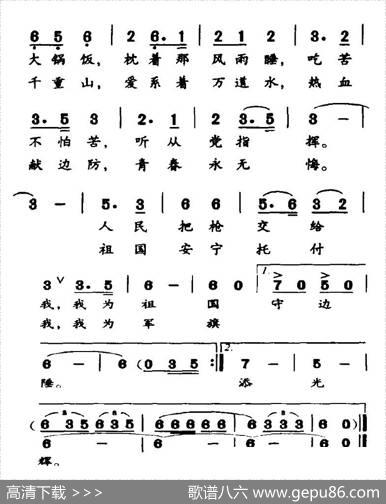 6 5 6 | 2 6·1 | 2 1 1 2 | 3·2 |
大锅饭，枕着那 风雨睡，吃苦
千重山，爱系着 万道水，热血
3·5 3 | 2·1 | 2 3·5 | 3 － |
不怕苦，听从 党指 挥。
献边防，青春 永无 悔。
3 － | 5·3 | 6 6 | 5·6 3 2 |
人民 把枪 交给
祖国 安宁 托付
3 3·5 | 6 － | 6 0 | 7 0 5 0 |
1.
我，我为 祖 国 守边
我，我为 军 旗
6 － | 6 (0 3 5 :‖ 7 － | 5 － |
2.
陲。 添 光
(6 3 5 6 3 5 | 6 6 6 6 6 | 6 3 3 6 3 3 | 6 0) ‖
6 － | 6 － | 6 － | 6 0 ‖
辉。
高清下载 >>>
歌谱八六 www.gepu86.com